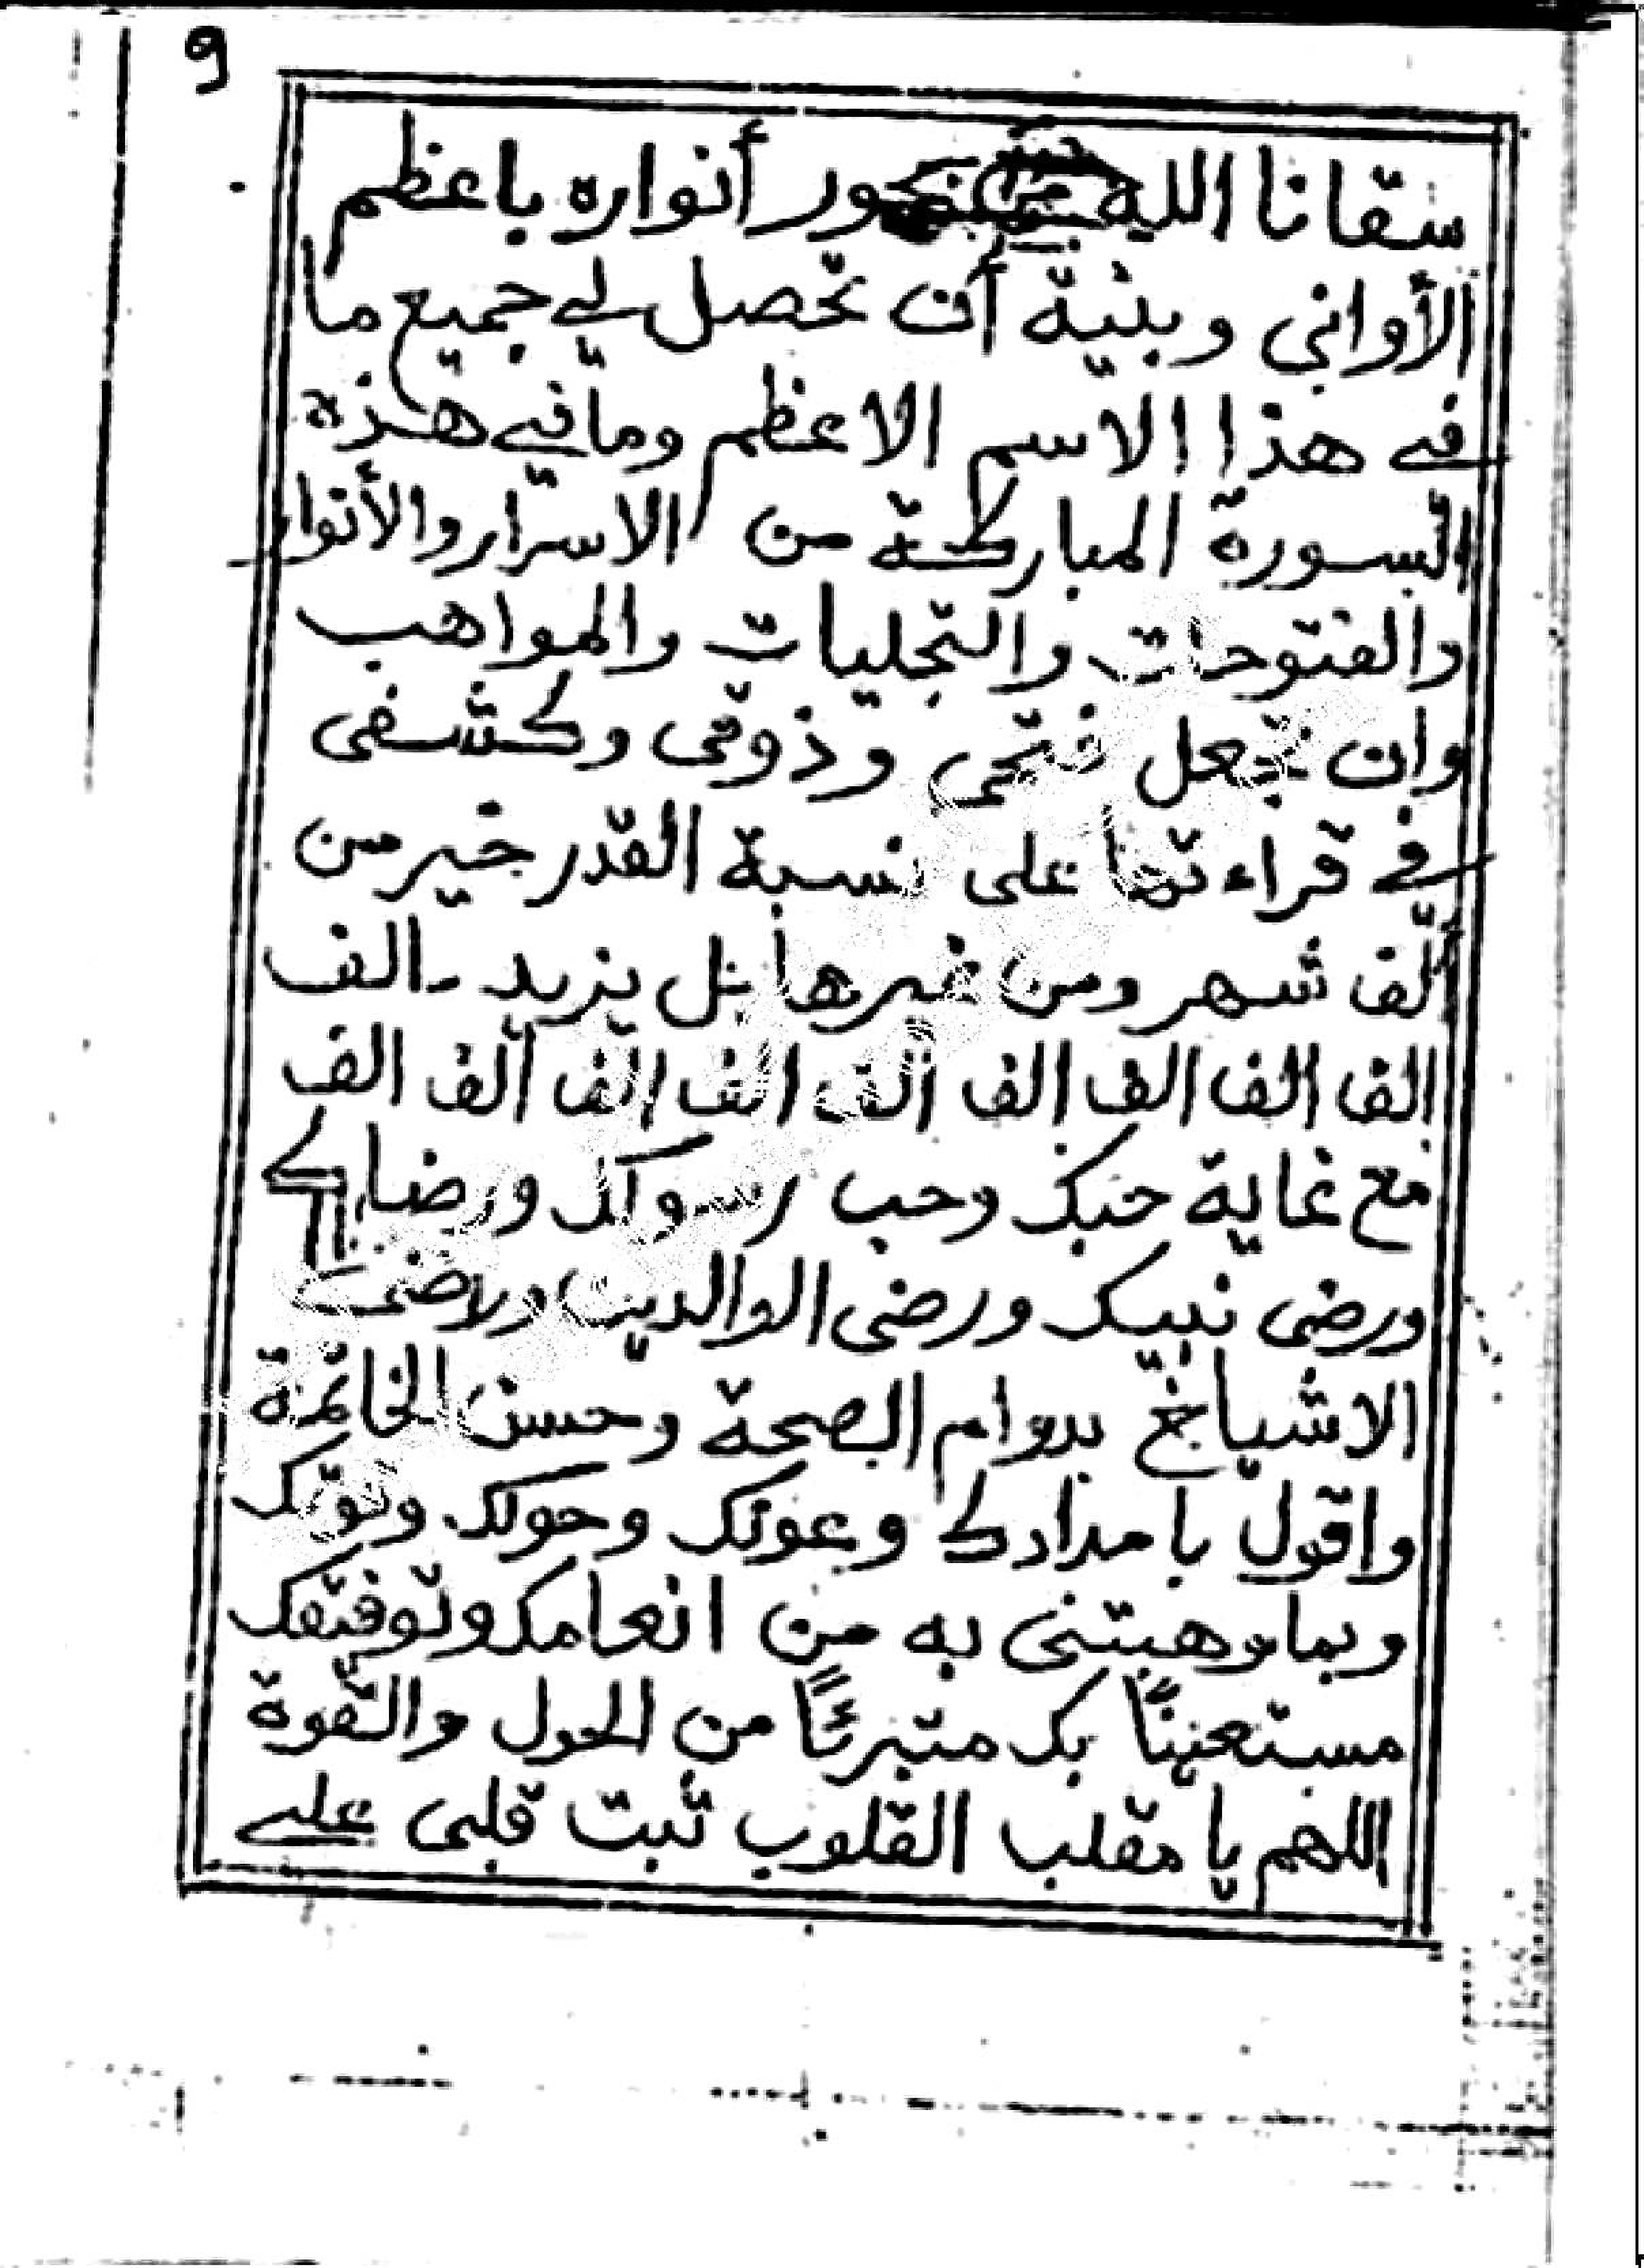 9
سقانا الله من بحور أنواره باعظم
الأواني وبنية أن تحصل لي جميع ما
في هذا الاسم الاعظم وما في هذه
السورة المباركة من الاسرار والأنوار
والفتوحات والتجليات والمواهب
وان تجعل فتحى وذوقى وكشفى
في قراءتها على نسبة القدر خير من
ألف شهر ومن غيرها بل يزيد الف
الف الف الف الف ألف الف الف ألف الف
مع غاية حبك وحب رسولك ورضاك
ورضى نبيك ورضى الوالدين ورضى
الاشياخ بدوام الصحة وحسن الخاتمة
واقول بامدادك وعونك وحولك وقوتك
وبما وهبتنى به من انعامك وتوفيقك
مستعينًا بك متبرئًا من الحول والقوة
اللهم يا مقلب القلوب ثبت قلبى على